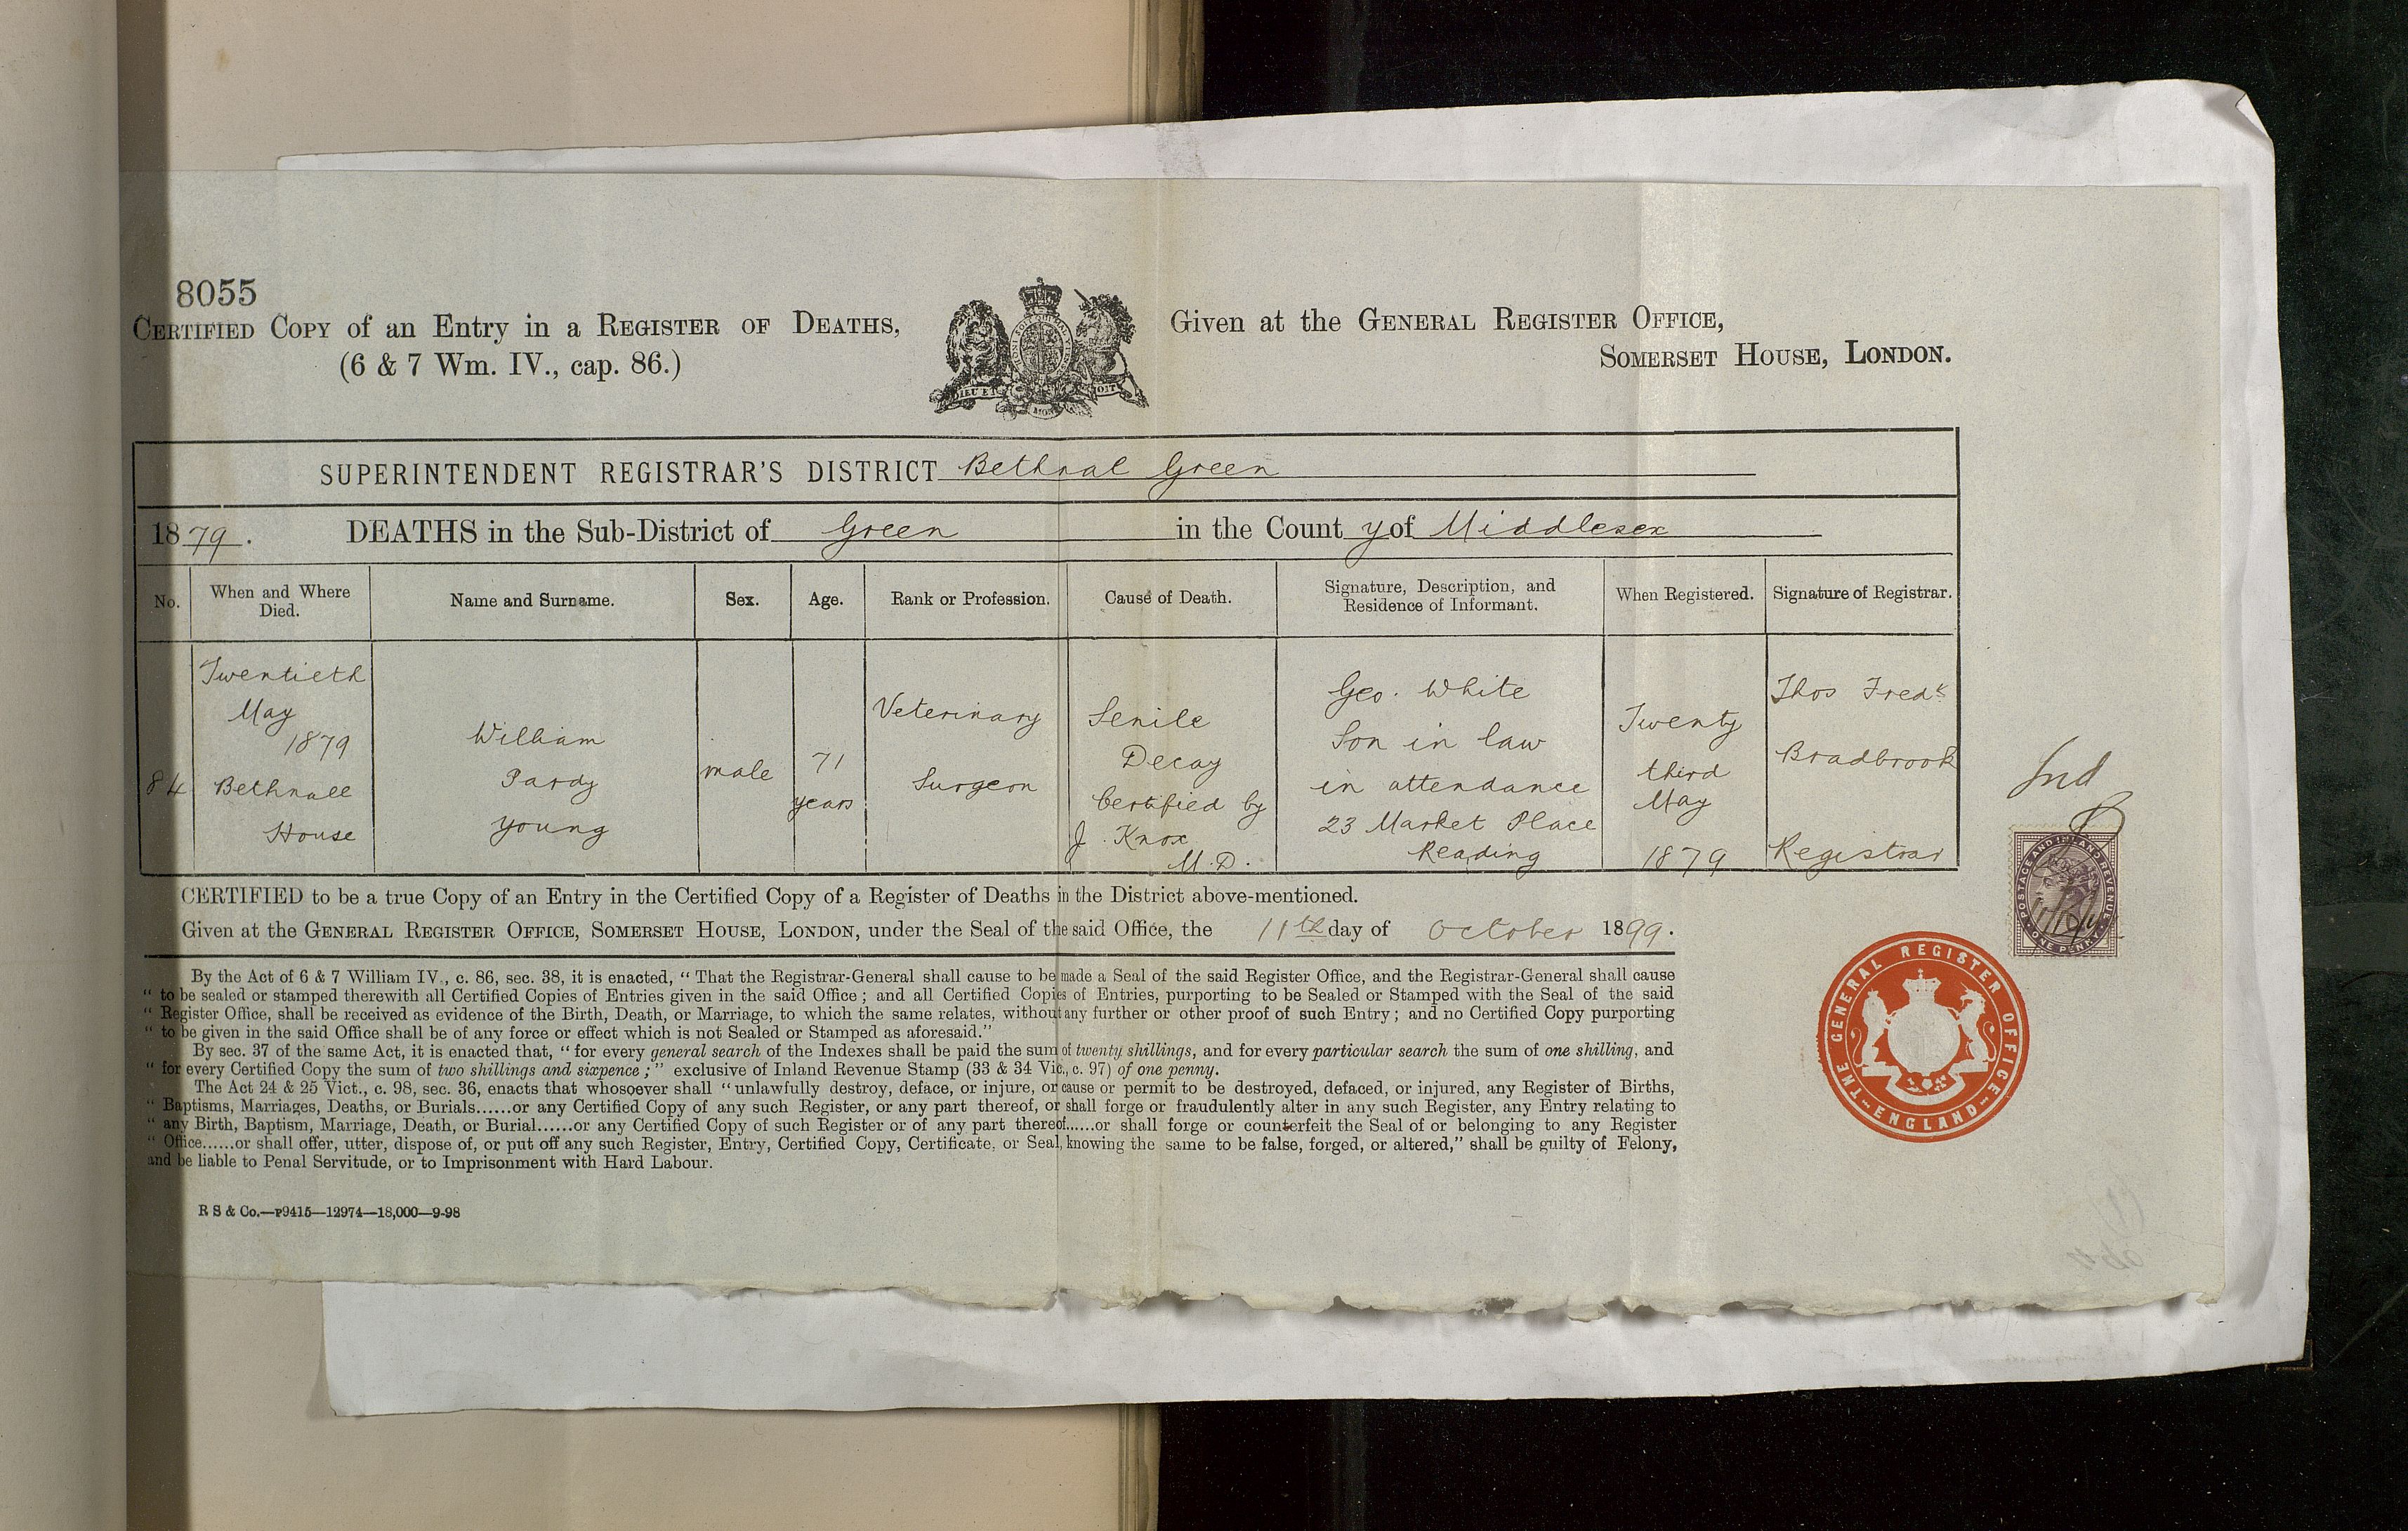 8055
CERTIFIED COPY of an Entry in a REGISTER OF DEATHS,
(6 & 7 Wm. IV., cap. 86.)
DIEU ET MON DROIT
Given at the GENERAL REGISTER OFFICE,
SOMERSET HOUSE, LONDON.
SUPERINTENDENT REGISTRAR'S DISTRICT Bethnal Green
1879. DEATHS in the Sub-District of Green in the County of Middlesex
No.
When and Where
Died.
Name and Surname.
Sex.
Age.
Rank or Profession.
Cause of Death.
Signature, Description, and
Residence of Informant.
When Registered.
Signature of Registrar.
84
Twentieth
May
1879
Bethnall
House
William
Pardy
Young
male
71
years
Veterinary
Surgeon
Senile
Decay
Certified by
J. Knox
M.D.
Geo. White
Son in law
in attendance
23 Market Place
Reading
Twenty
third
May
1879
Thos Fredk
Bradbrook
Registrar
CERTIFIED to be a true Copy of an Entry in the Certified Copy of a Register of Deaths in the District above-mentioned.
Given at the GENERAL REGISTER OFFICE, SOMERSET HOUSE, LONDON, under the Seal of the said Office, the 11th day of October 1899.
By the Act of 6 & 7 William IV., c. 86, sec. 38, it is enacted, "That the Registrar-General shall cause to be made a Seal of the said Register Office, and the Registrar-General shall cause
"to be sealed or stamped therewith all Certified Copies of Entries given in the said Office; and all Certified Copies of Entries, purporting to be Sealed or Stamped with the Seal of the said
"Register Office, shall be received as evidence of the Birth, Death, or Marriage, to which the same relates, without any further or other proof of such Entry; and no Certified Copy purporting
"to be given in the said Office shall be of any force or effect which is not Sealed or Stamped as aforesaid."
By sec. 37 of the same Act, it is enacted that, "for every general search of the Indexes shall be paid the sum of twenty shillings, and for every particular search the sum of one shilling, and
"for every Certified Copy the sum of two shillings and sixpence;" exclusive of Inland Revenue Stamp (33 & 34 Vic., c. 97) of one penny.
The Act 24 & 25 Vict., c. 98, sec. 36, enacts that whosoever shall "unlawfully destroy, deface, or injure, or cause or permit to be destroyed, defaced, or injured, any Register of Births,
"Baptisms, Marriages, Deaths, or Burials......or any Certified Copy of any such Register, or any part thereof, or shall forge or fraudulently alter in any such Register, any Entry relating to
"any Birth, Baptism, Marriage, Death, or Burial......or any Certified Copy of such Register or of any part thereof......or shall forge or counterfeit the Seal of or belonging to any Register
"Office......or shall offer, utter, dispose of, or put off any such Register, Entry, Certified Copy, Certificate, or Seal, knowing the same to be false, forged, or altered," shall be guilty of Felony,
and be liable to Penal Servitude, or to Imprisonment with Hard Labour.
R S & Co.—P9415—12974—18,000—9-98
POSTAGE AND INLAND REVENUE
ONE PENNY
THE GENERAL REGISTER OFFICE
ENGLAND